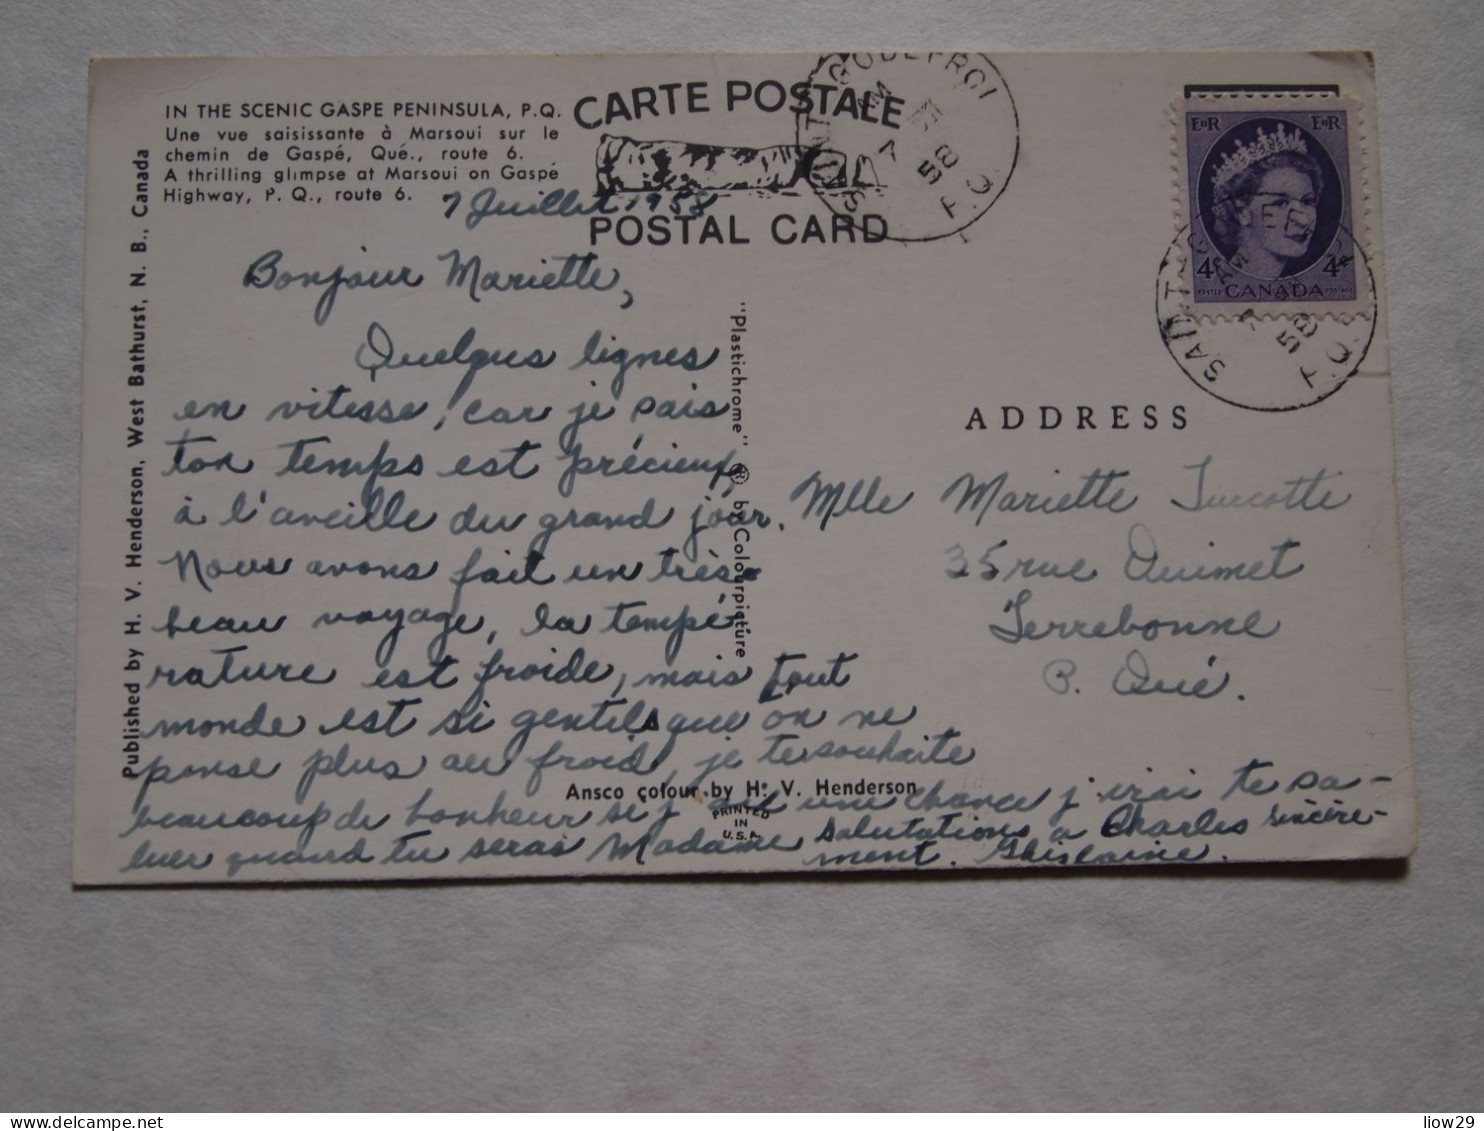 IN THE SCENIC GASPE PENINSULA, P.Q.
Une vue saisissante à Marsoui sur le
chemin de Gaspé, Qué., route 6.
A thrilling glimpse at Marsoui on Gaspé
Highway, P. Q., route 6.
CARTE POSTALE
POSTAL CARD
SAINT-GODEFROI
AM
7
58
P.Q.
EIIR EIIR
4¢ 4¢
POSTES CANADA POSTAGE
SAINT-GODEFROI
AM
7
58
P.Q.
Published by H. V. Henderson, West Bathurst, N. B., Canada
7 Juillet 1958
Bonjour Mariette,
Quelques lignes
en vitesse, car je sais
ton temps est précieux,
à l'aveille du grand jour.
Nous avons fait un très
beau voyage, la tempé-
rature est froide, mais tout
monde est si gentils que on ne
pense plus au froid, je te souhaite
beaucoup de bonheur si j'ai une chance j'irai te sa-
luer quand tu seras Madame salutations a Charles sincère-
ment. Ghislaine.
"Plastichrome" ® by Colourpicture
ADDRESS
Mlle Mariette Turcotte
35 rue Ouimet
Terrebonne
P. Qué.
Ansco colour by H. V. Henderson
PRINTED
IN
U.S.A.
Delcampe.net
liow29